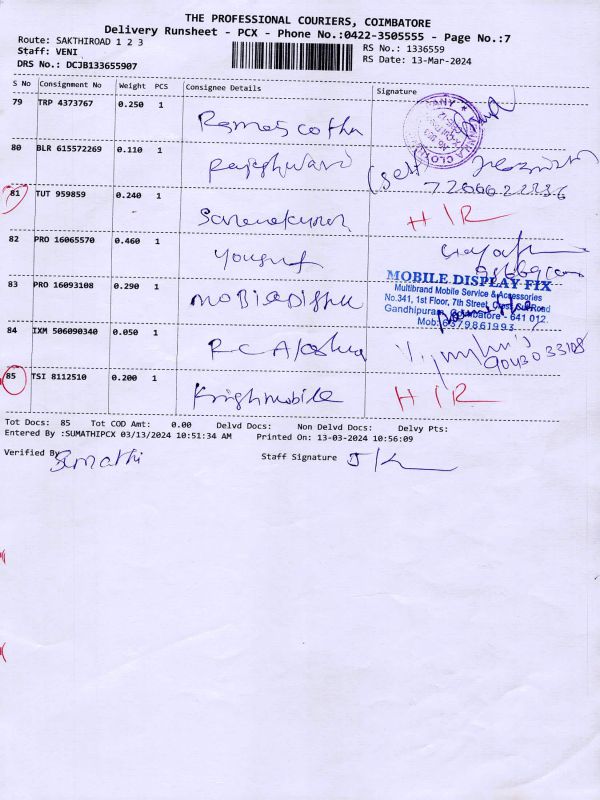 THE PROFESSIONAL COURIERS, COIMBATORE
Delivery Runsheet - PCX - Phone No.:0422-3505555 - Page No.:7
Route: SAKTHIROAD 1 2 3
RS No.: 1336559
Staff: VENI
RS Date: 13-Mar-2024
DRS No.: DCJB133655907
S No Consignment No Weight PCS Consignee Details Signature
79 TRP 4373767 0.250 1
80 BLR 615572269 0.110 1
Rajeshwari
(Self)
81 TUT 959859 0.240 1
H I R
Saravanakumar
82 PRO 16065570 0.460 1
Yousuf
83 PRO 16093108 0.290 1
MOBILE DISPLAY FIX
Multibrand Mobile Service & Accessories
No.341, 1st Floor, 7th Street, Cross Cut Road
Gandhipuram, Coimbatore - 641 012.
Mob: 6379861993
84 IXM 506090340 0.050 1
9043033108
85 TSI 8112510 0.200 1
Krishmobile
H I R
Tot Docs: 85 Tot COD Amt: 0.00 Delvd Docs: Non Delvd Docs: Delvy Pts:
Entered By :SUMATHIPCX 03/13/2024 10:51:34 AM Printed On: 13-03-2024 10:56:09
Verified By Sumathi Staff Signature